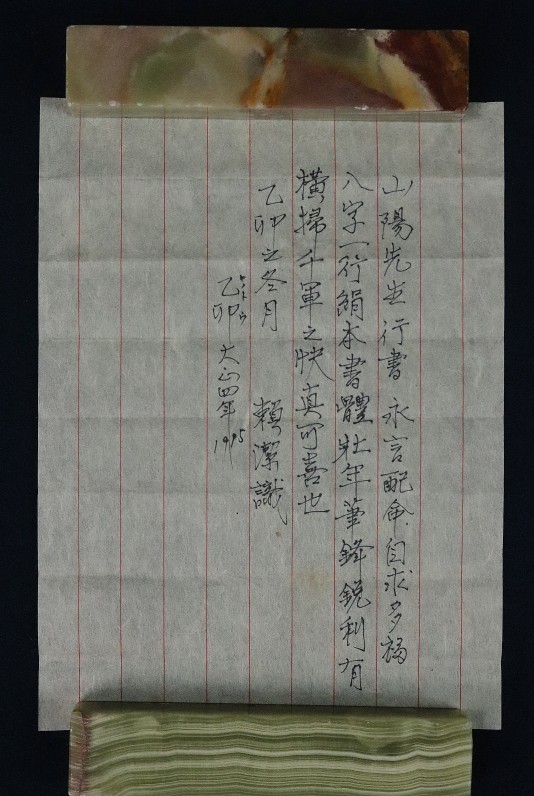 山陽先生行書永言配命自求多福
八字一行絹本書體壯年筆鋒鋭利有
橫掃千軍之快真可喜也
乙卯之冬月 賴潔識
乙卯大正四年 1915